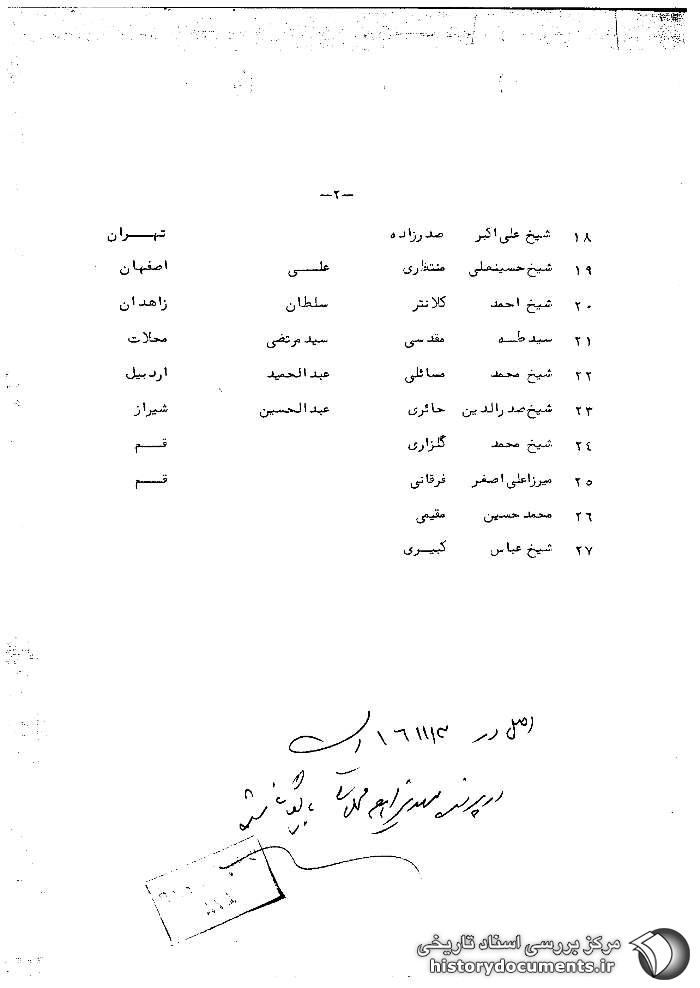 -۲-
۱۸ شیخ علی اکبر صدرزاده تهران
۱۹ شیخ حسینعلی منتظری علی اصفهان
۲۰ شیخ احمد کلانتر سلطان زاهدان
۲۱ سید طه مقدسی سید مرتضی محلات
۲۲ شیخ محمد مسائلی عبدالحمید اردبیل
۲۳ شیخ صدرالدین حائری عبدالحسین شیراز
۲۴ شیخ محمد گلزاری قم
۲۵ میرزاعلی اصغر فرقانی قم
۲۶ محمد حسین مقیمی
۲۷ شیخ عباس کبیری
اصل در ۱۶۱۱۱۳ است
در پرونده محلاتی بایگانی شد
مرکز بررسی اسناد تاریخی
historydocuments.ir